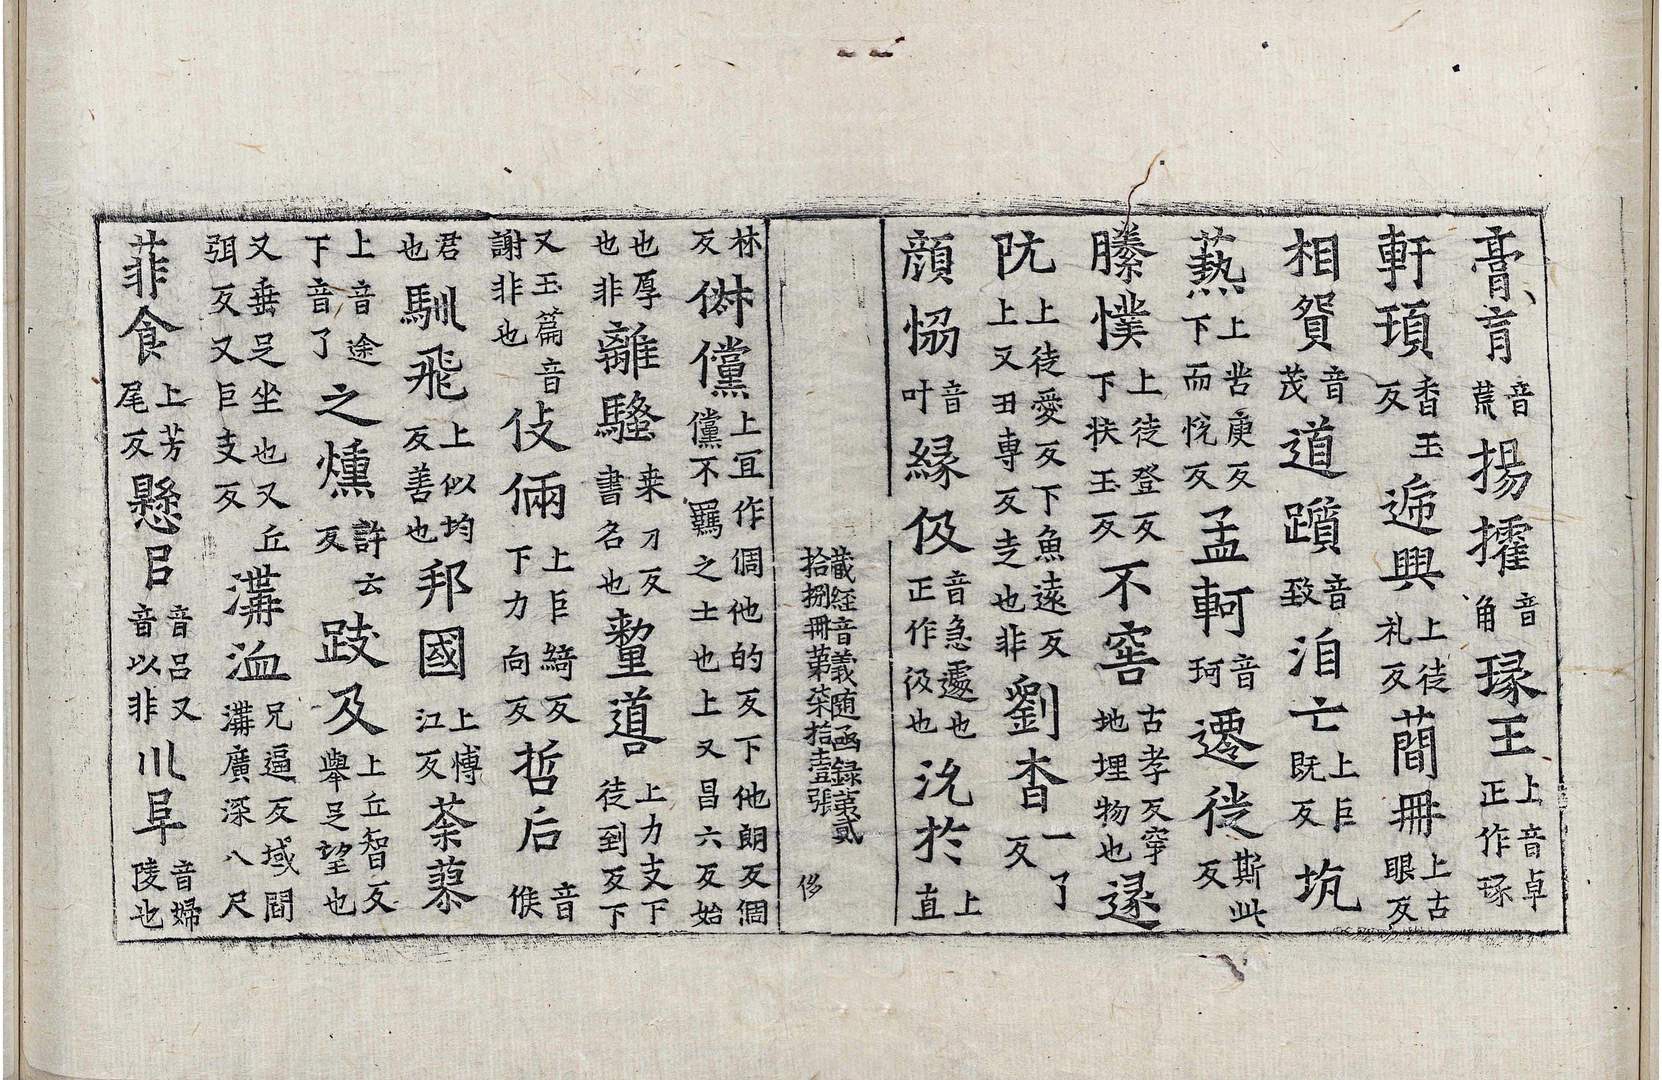 膏肓音荒揚擢音角瑑王上音卓正作琢
軒頊香玉反遞興上徒礼反蕳冊上古眼反
相贺音茂道躓音致洎亡上巨既反坑
爇下而悅反孟軻音珂遷徙斯此反
滕㒒上徒登反下扶玉反不窖古孝反穿地埋物也遂
阮上徒愛反下魚遠反上又丑専反走也非劉杳一了反
顔恊音叶縁伋音急遽也正作彶也沇於上直
藏経音義随函録苐貳拾捌冊苐柒拾壹張 侈
林反俶儻上冝作倜他的反下他朗反倜儻不羈之士也上又昌六反始
也厚也非離騷桒刀反書名也𨤲噵上力支下徒到反下
又玉篇音謝非也伎倆上巨綺反下力向反哲后音候
君也馴飛上似均反善也邦國上博江反荼蓼
上音途下音了之燻許云反跂及上丘智反舉足望也
又垂足坐也又丘弭反又巨支反溝洫兄逼反域間溝廣深八尺
菲食上芳尾反懸㠯音吕又音以非川阜音婦陵也